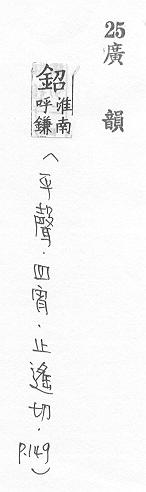 25廣韻
鉊淮南呼鎌
(平聲.四宵.止遙切.P.149)